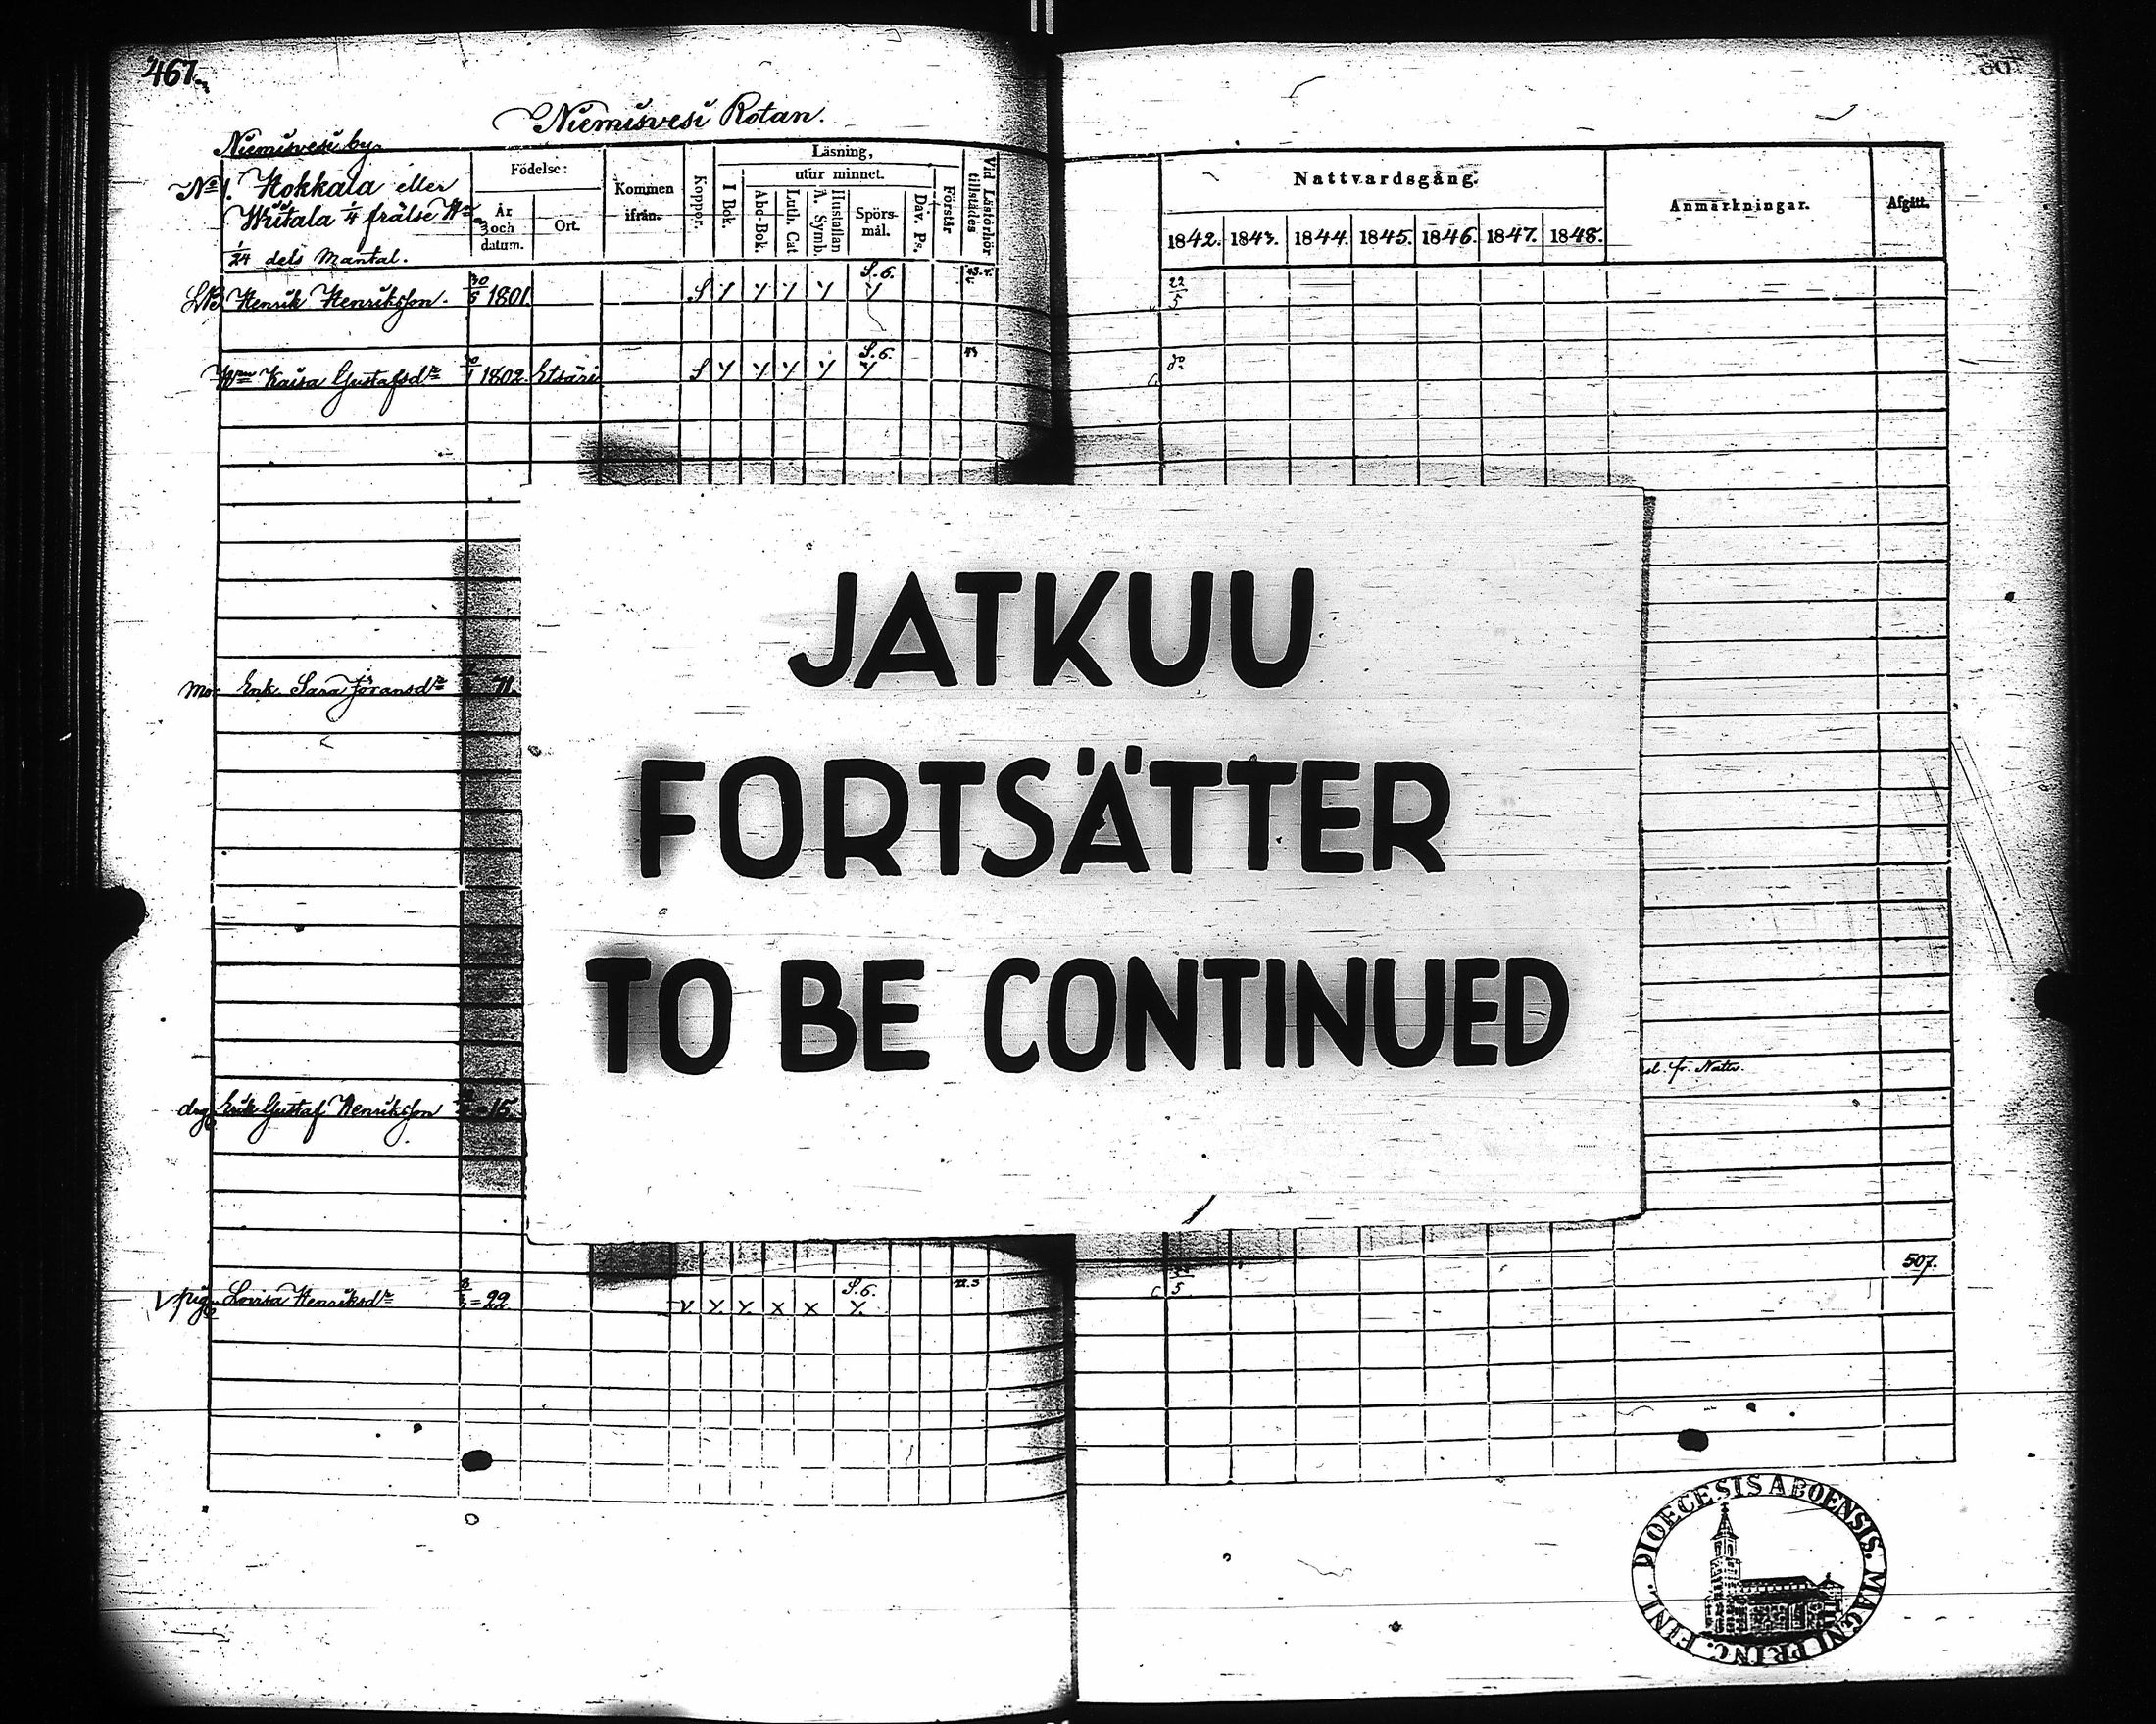 467.
Niemisvesi Rotan.
Niemisvesi by.
No 1. Kokkala eller
Writala 1/4 frälse
1/24 dels Mantal.
Födelse:
År och datum.
Ort.
Kommen ifrån.
Koppor.
Läsning,
utur minnet.
I Bok.
Abc-Bok.
Luth. Cat
Hustaflan A. Symb.
Spörsmål.
Dav. Ps.
Förstår
Vid Läsförhör tillstädes
Nattvardsgång:
1842. 1843. 1844. 1845. 1846. 1847. 1848.
Anmärkningar.
Afgått.
Henrik Henriksson. 30/5 1801 S.6. 22/5
Kaisa Gustafsdr 1802. Etsäri S.6. 43 do
JATKUU
FORTSÄTTER
TO BE CONTINUED
Mor Enk. Sara Jöransdr 71.
fr. Nattv.
drg Erik Gustaf Henriksson 15.
507.
pig. Lovisa Henriksdr = 22 S.6.
DIOECESIS ABOENSIS. MAGNI PRINC. FINL.